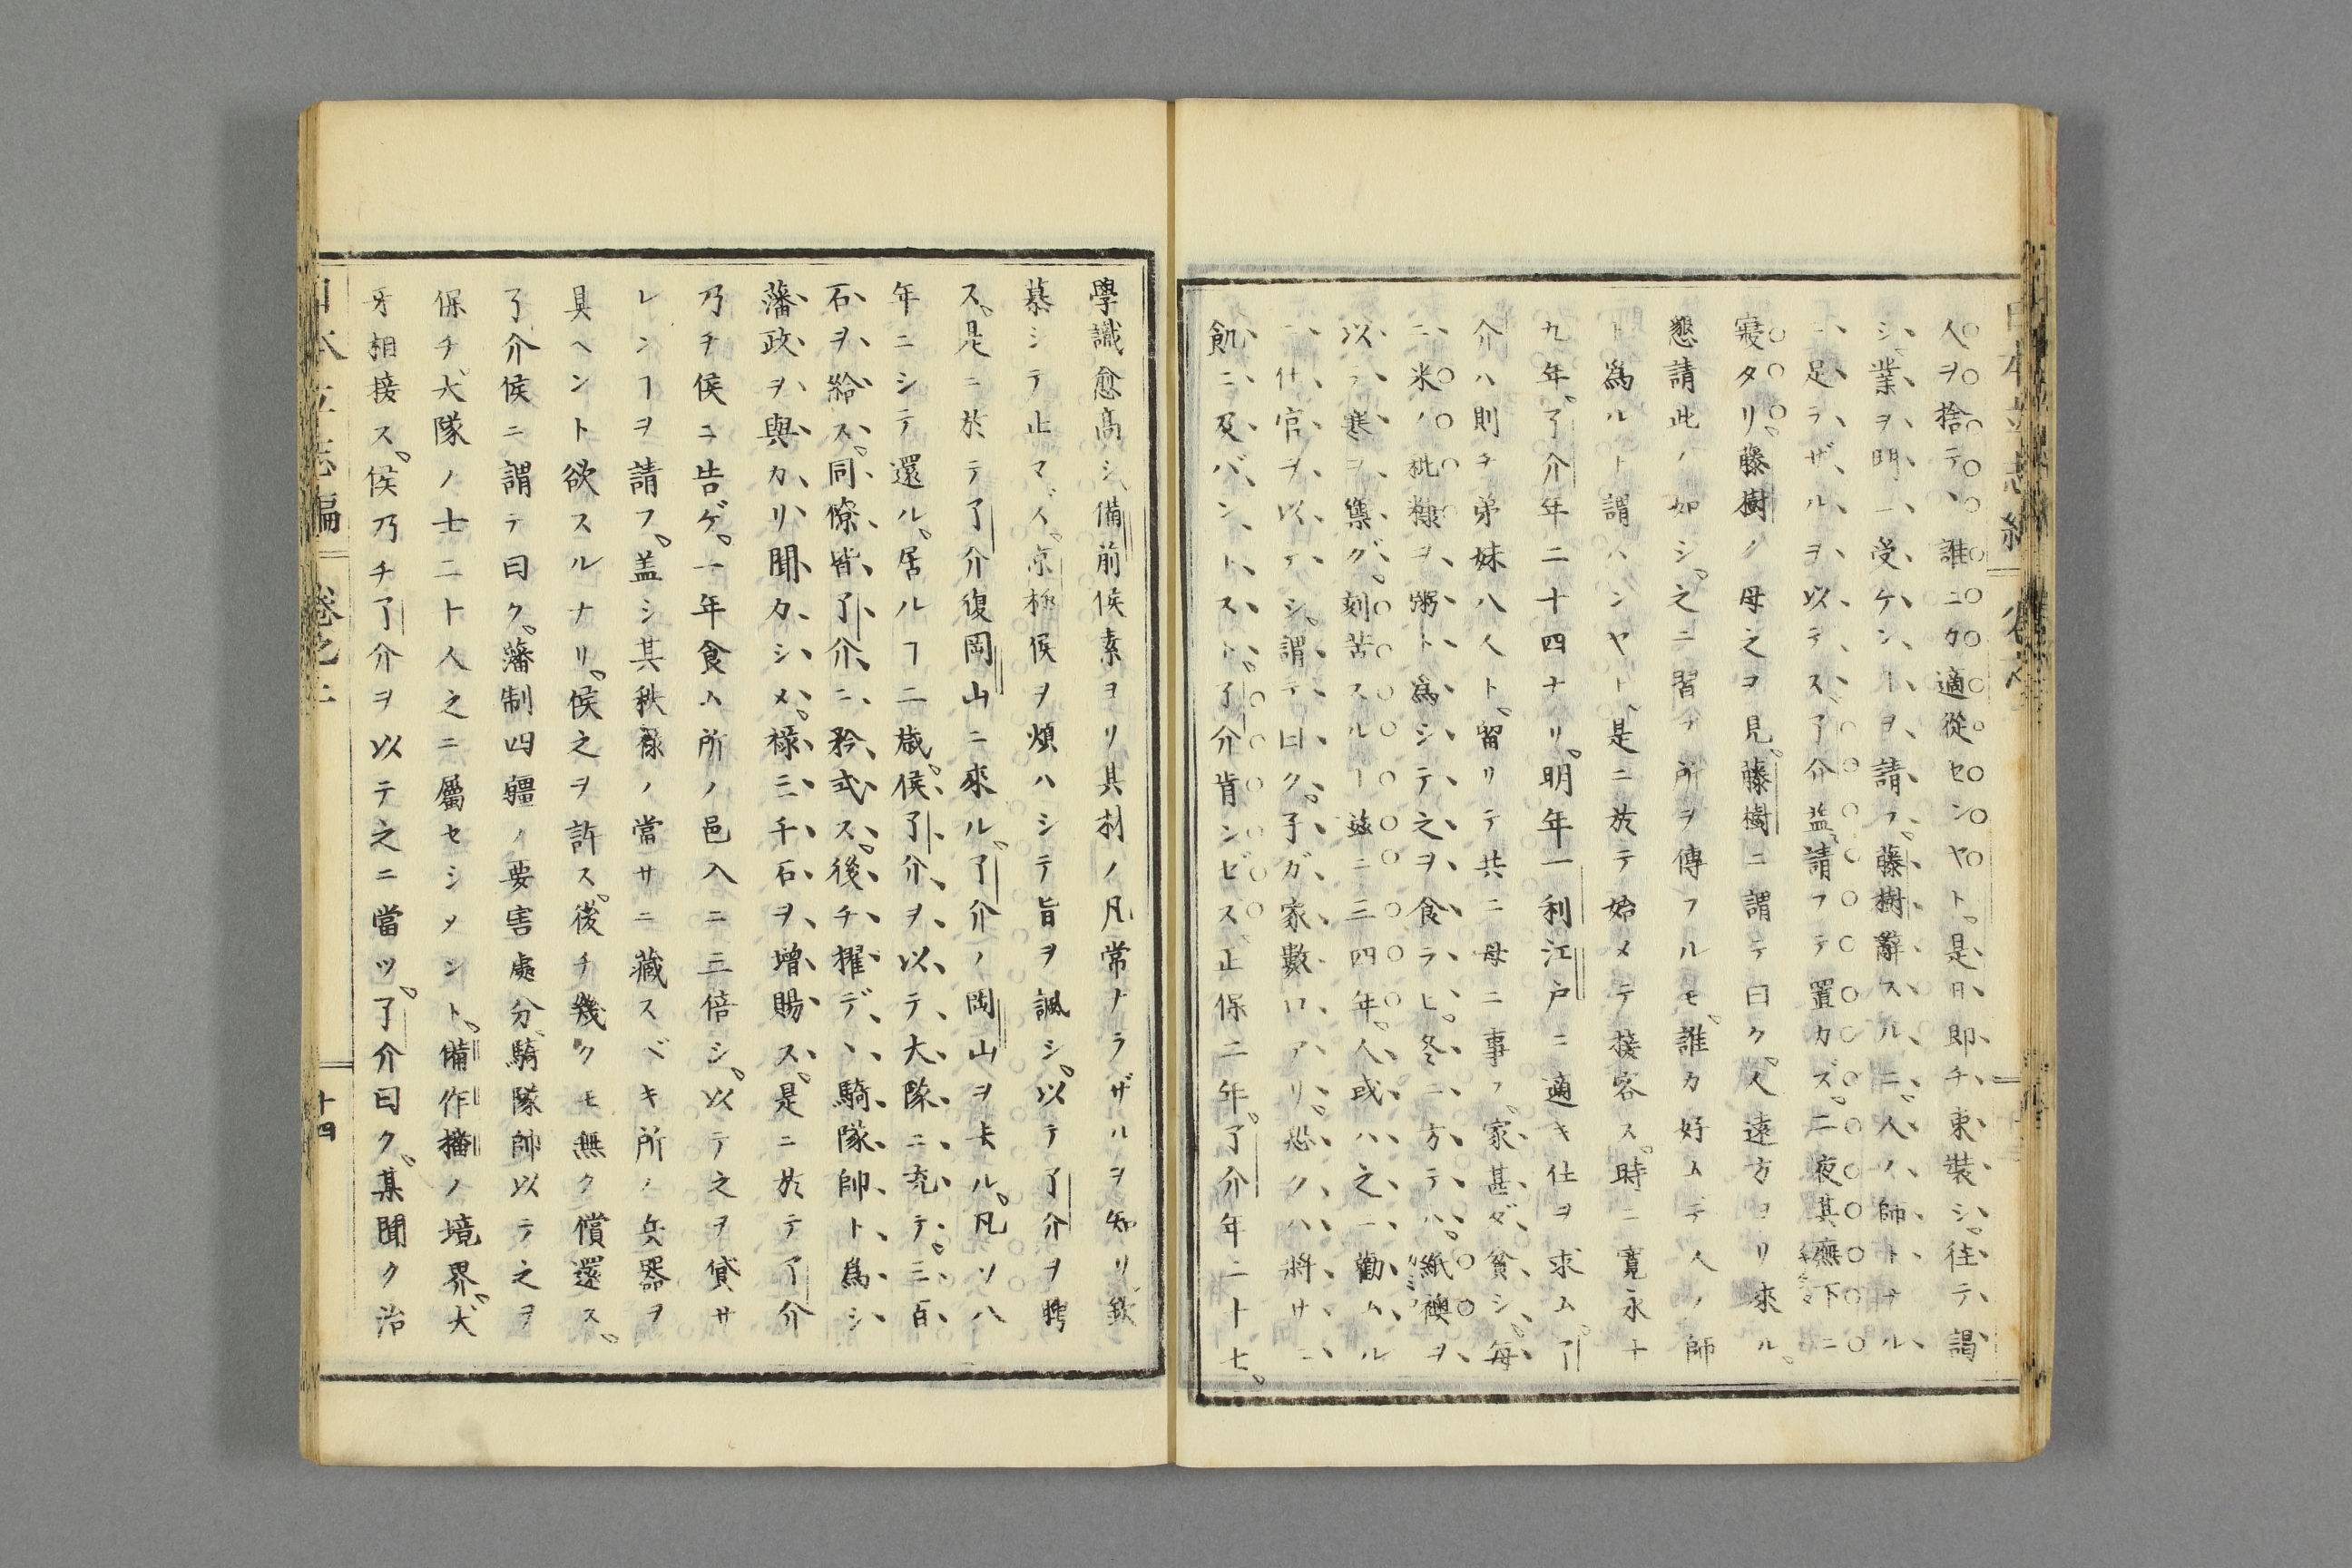 人ヲ捨テ、誰ニカ適從センヤト。是日、即チ束裝シ。往テ謁
シ、業ヲ門ニ受ケンヿヲ請フ。藤樹辭スルニ、人ノ師トナル
ニ足ラザルヲ以テス。了介益請フテ置カズ。二夜其廡下ニ
寝タリ。藤樹ノ母之ヲ見。藤樹ニ謂テ曰ク。人遠方ヨリ來ル。
懇請此ノ如シ。之ニ習フ所ヲ傳フルモ。誰カ好ムデ人ノ師
ト爲ルト謂ハンヤト。是ニ於テ始メテ接客ス。時ニ寛永十
九年。了介年二十四ナリ。明年一利江戸ニ適キ仕ヲ求ム。了
介ハ則チ弟妹八人ト。留リテ共ニ母ニ事フ。家甚ダ貧シ。毎
ニ米ノ粃糠ヲ粥ト爲シテ之ヲ食ラヒ。冬ニ方テハ。紙襖ヲ
以テ寒ヲ禦グ。刻苦スルヿ茲ニ三四年。人或ハ之ニ勸ムル
ニ、仕官ヲ以テシ。謂テ曰ク。子ガ家數口アリ。恐クハ將サニ
飢ニ及バントスト。了介肯ンゼス。正保二年。了介年二十七。
學識愈高シ。備前侯素ヨリ其材ノ凡常ナラザルヲ知リ。欽
慕シテ止マズ。京極侯ヲ煩ハシテ旨ヲ諷シ。以テ了介ヲ聘
ス。是ニ於テ了介復岡山ニ來ル。了介ノ岡山ヲ去ル。凡ソ八
年ニシテ還ル。居ルヿ二歳。侯了介ヲ以テ大隊ニ充テ。三百
石ヲ給ス。同僚皆了介ニ矜式ス。後チ擢デ、騎隊帥ト爲シ
藩政ヲ與カリ聞カシメ。禄三千石ヲ增賜ス。是ニ於テ了介
乃チ侯ニ告ゲ。一年食ム所ノ邑入ニ三倍シ。以テ之ヲ貸サ
レンヿヲ請フ。盖シ其秩祿ノ當サニ藏スベキ所ノ兵器ヲ
具ヘント欲スルナリ。侯之ヲ許ス。後チ幾クモ無ク償還ス。
了介侯ニ謂テ曰ク。藩制四疆ノ要害處分。騎隊帥以テ之ヲ
保チ。大隊ノ士二十人之ニ屬セシメント。備作播ノ境界。犬
牙相接ス。侯乃チ了介ヲ以テ之ニ當ツ。了介曰ク。某聞ク治
日本立志編 卷之二 十四